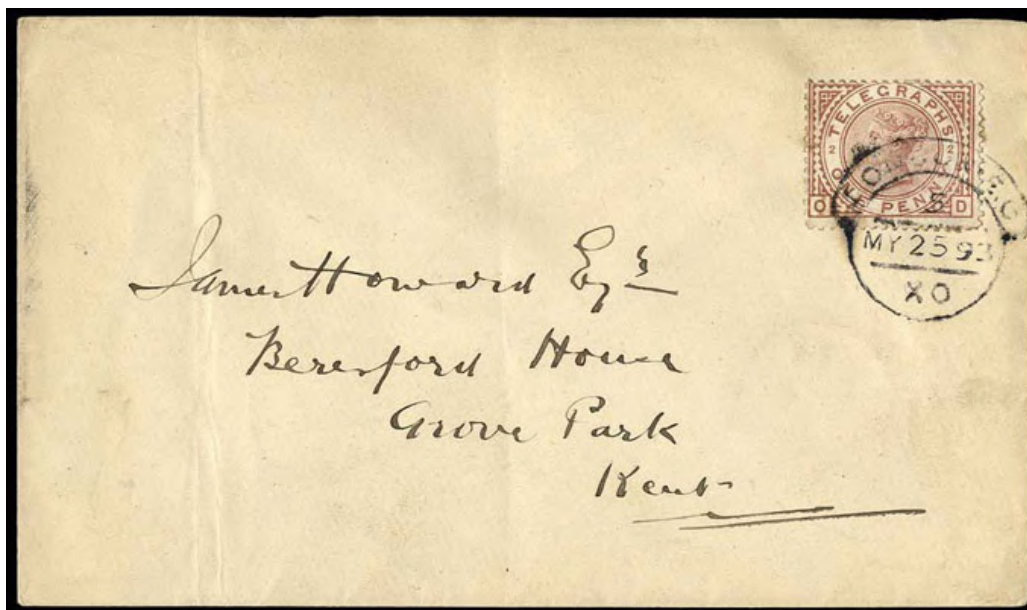 TELEGRAPHS
2 2
ONE PENNY
O D
LOMBARD ST. E.C.
5
MY 25 93
XO
James Howard Esqr
Beresford House
Grove Park
Kent